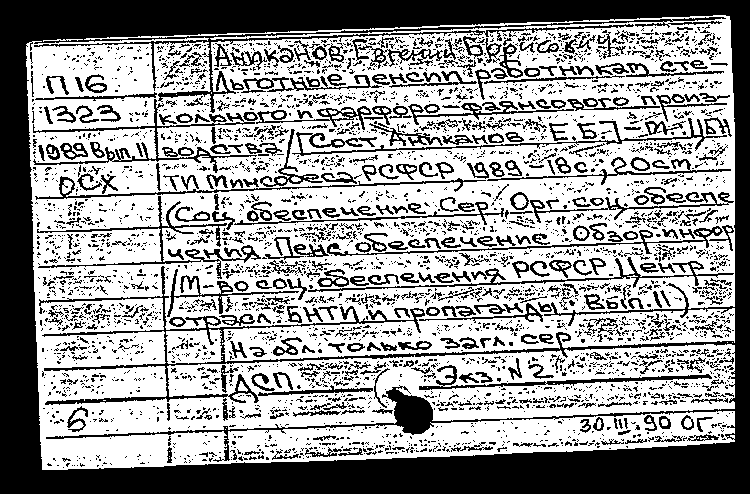 Аниканов Евгений Борисович
П16 Льготные пенсии работникам сте-
1323 кольного и фарфоро-фаянсового произ-
1989 Вып.11 водства / [Сост. Аниканов Е.Б.] – М.: ЦБН
ОСХ ТИ Минсобеса РСФСР, 1989. – 18 с.; 20 см. –
(Соц. обеспечение. Сер. "Орг. соц. обеспе
чения. Пенс. обеспечение": Обзор. инфор
/ М-во соц. обеспечения РСФСР. Центр.
отрасл. БНТИ и пропаганды; Вып. 11).
На обл. только загл. сер.
ДСП. Экз. N2
6 30.III.90 ОГ